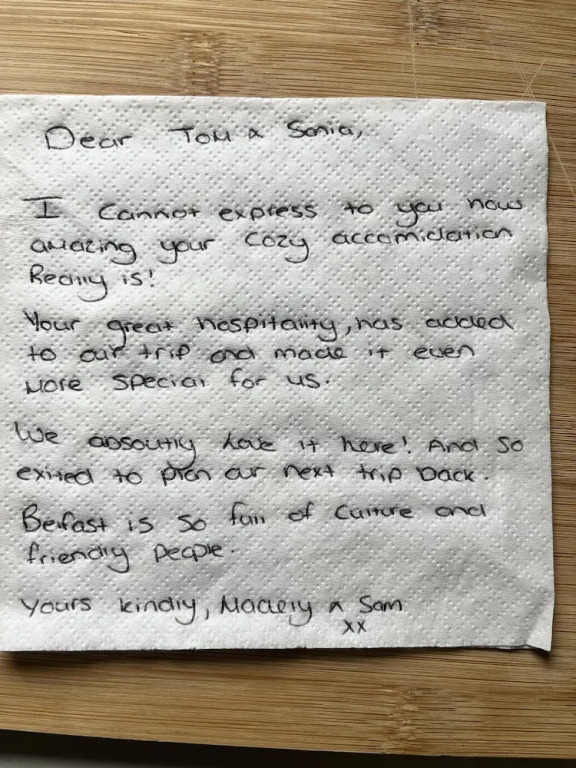 Dear Tom & Sonia,
I cannot express to you how
amazing your cozy accomidation
Really is!
Your great hospitality, has added
to our trip and made it even
more special for us.
We absoutly love it here! And so
exited to plan our next trip back.
Belfast is so full of culture and
friendly people.
Yours kindly, Madely & Sam
xx